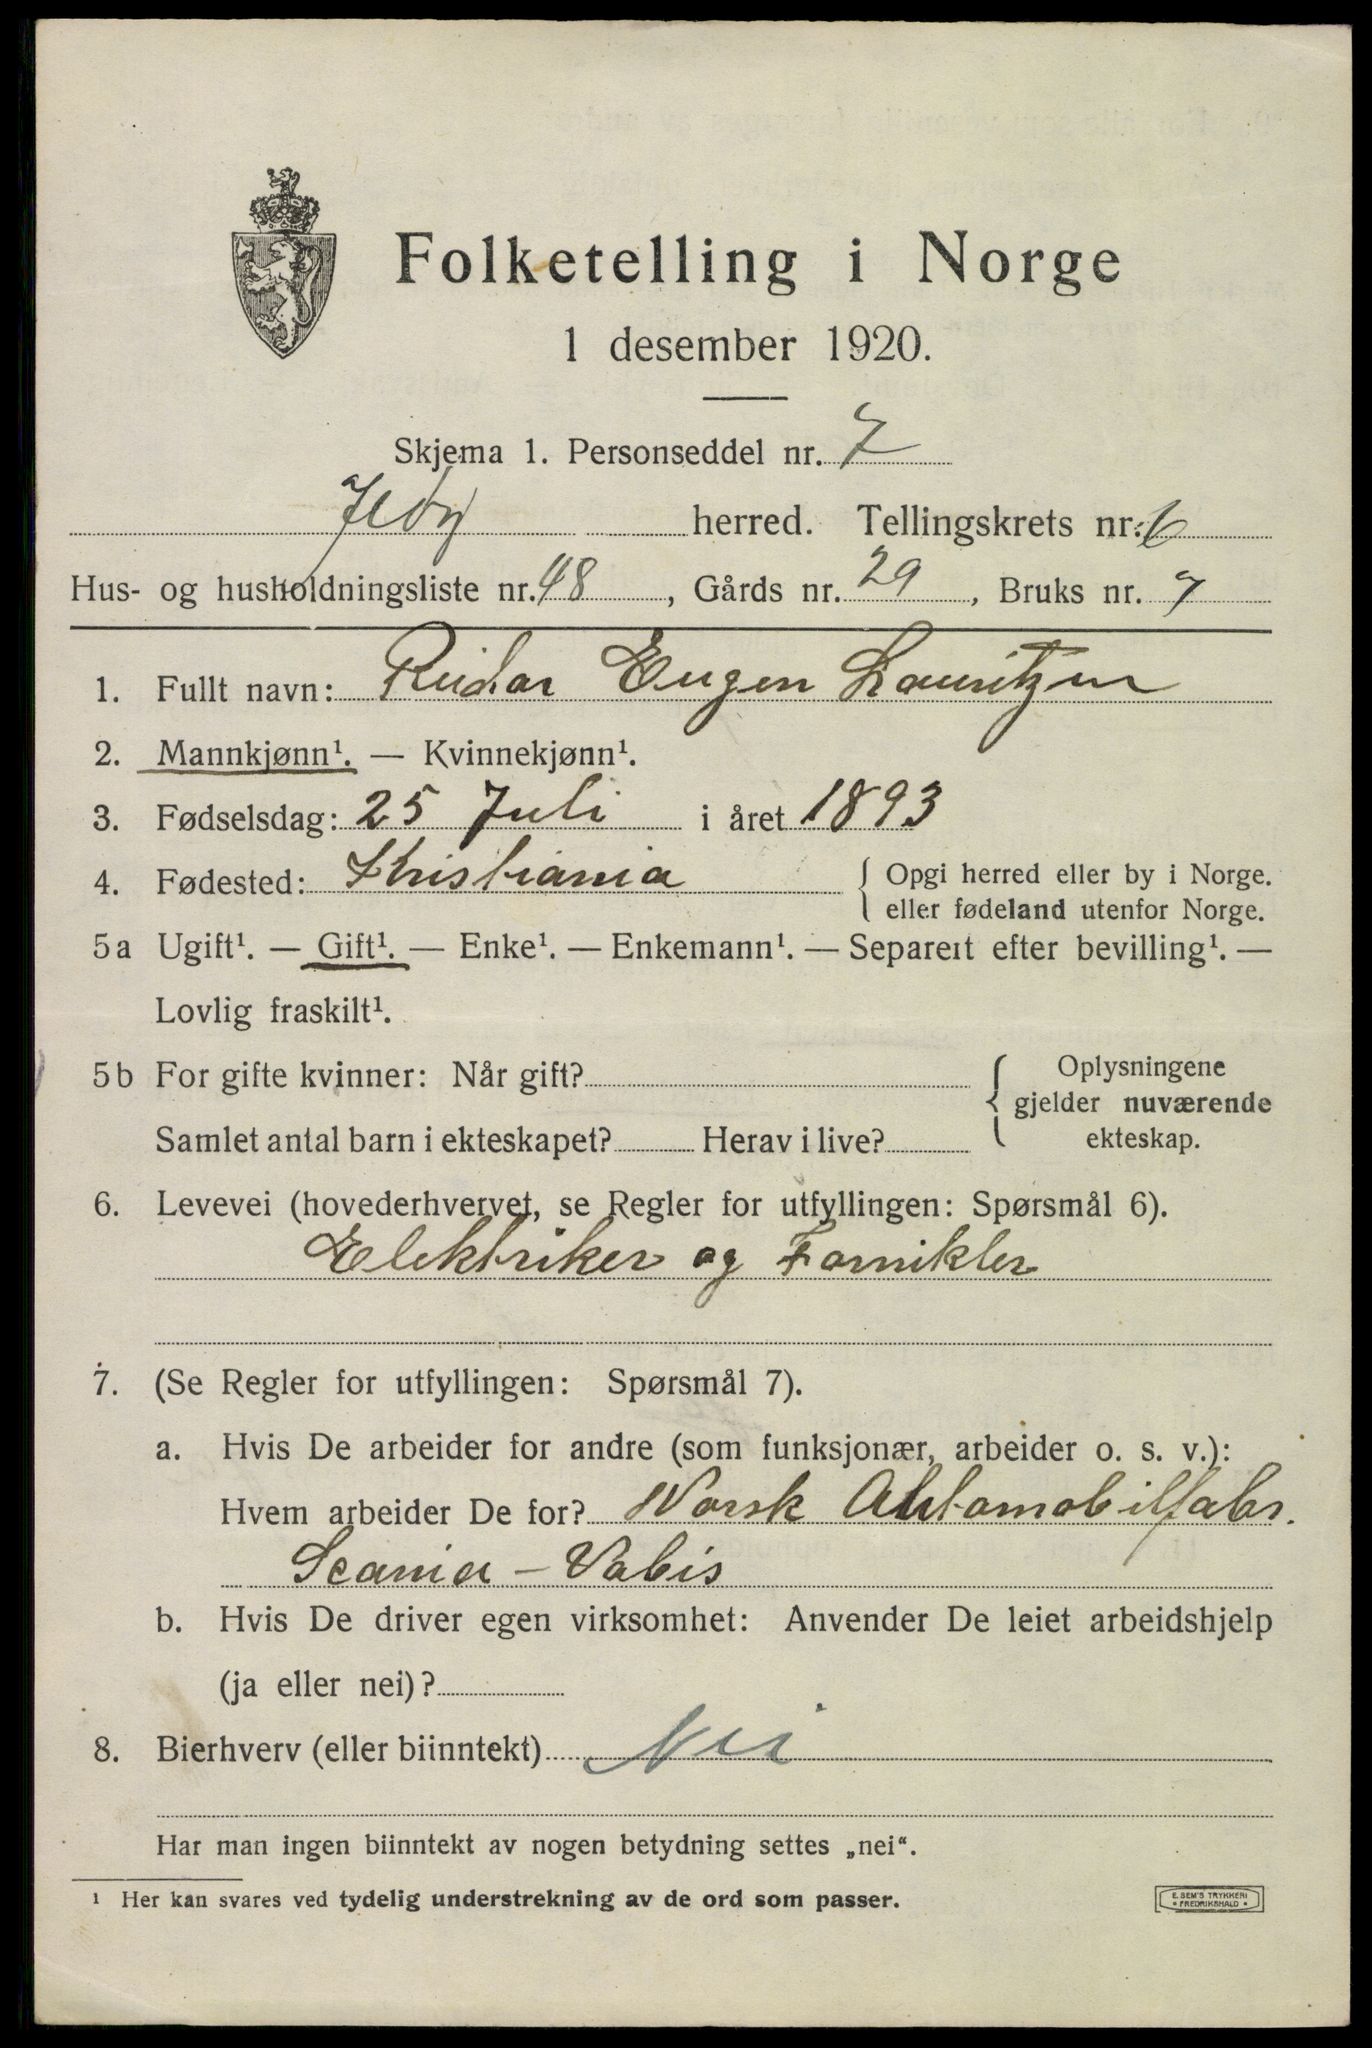 Folketelling i Norge
1 desember 1920.
Skjema 1. Personseddel nr. 7
Jeløy herred. Tellingskrets nr. 6
Hus- og husholdningsliste nr. 48, Gårds nr. 29, Bruks nr. 7
1. Fullt navn: Reidar Eugen Lauritzen
2. Mannkjønn¹. — Kvinnekjønn¹.
3. Fødselsdag: 25 Juli i året 1893
4. Fødested: Kristiania { Opgi herred eller by i Norge.
eller fødeland utenfor Norge.
5a Ugift¹. — Gift¹. — Enke¹. — Enkemann¹. — Separert efter bevilling¹. —
Lovlig fraskilt¹.
5b For gifte kvinner: Når gift? { Oplysningene
gjelder nuværende
Samlet antal barn i ekteskapet? Herav i live? ekteskap.
6. Levevei (hovederhvervet, se Regler for utfyllingen: Spørsmål 6).
Elektriker og Fornikler
7. (Se Regler for utfyllingen: Spørsmål 7).
a. Hvis De arbeider for andre (som funksjonær, arbeider o. s. v.):
Hvem arbeider De for? Norsk Automobilfabr.
Scania-Vabis
b. Hvis De driver egen virksomhet: Anvender De leiet arbeidshjelp
(ja eller nei)?
8. Bierhverv (eller biinntekt) Nei
Har man ingen biinntekt av nogen betydning settes „nei“.
¹ Her kan svares ved tydelig understrekning av de ord som passer.
E. SEM'S TRYKKERI
• FREDRIKSHALD •